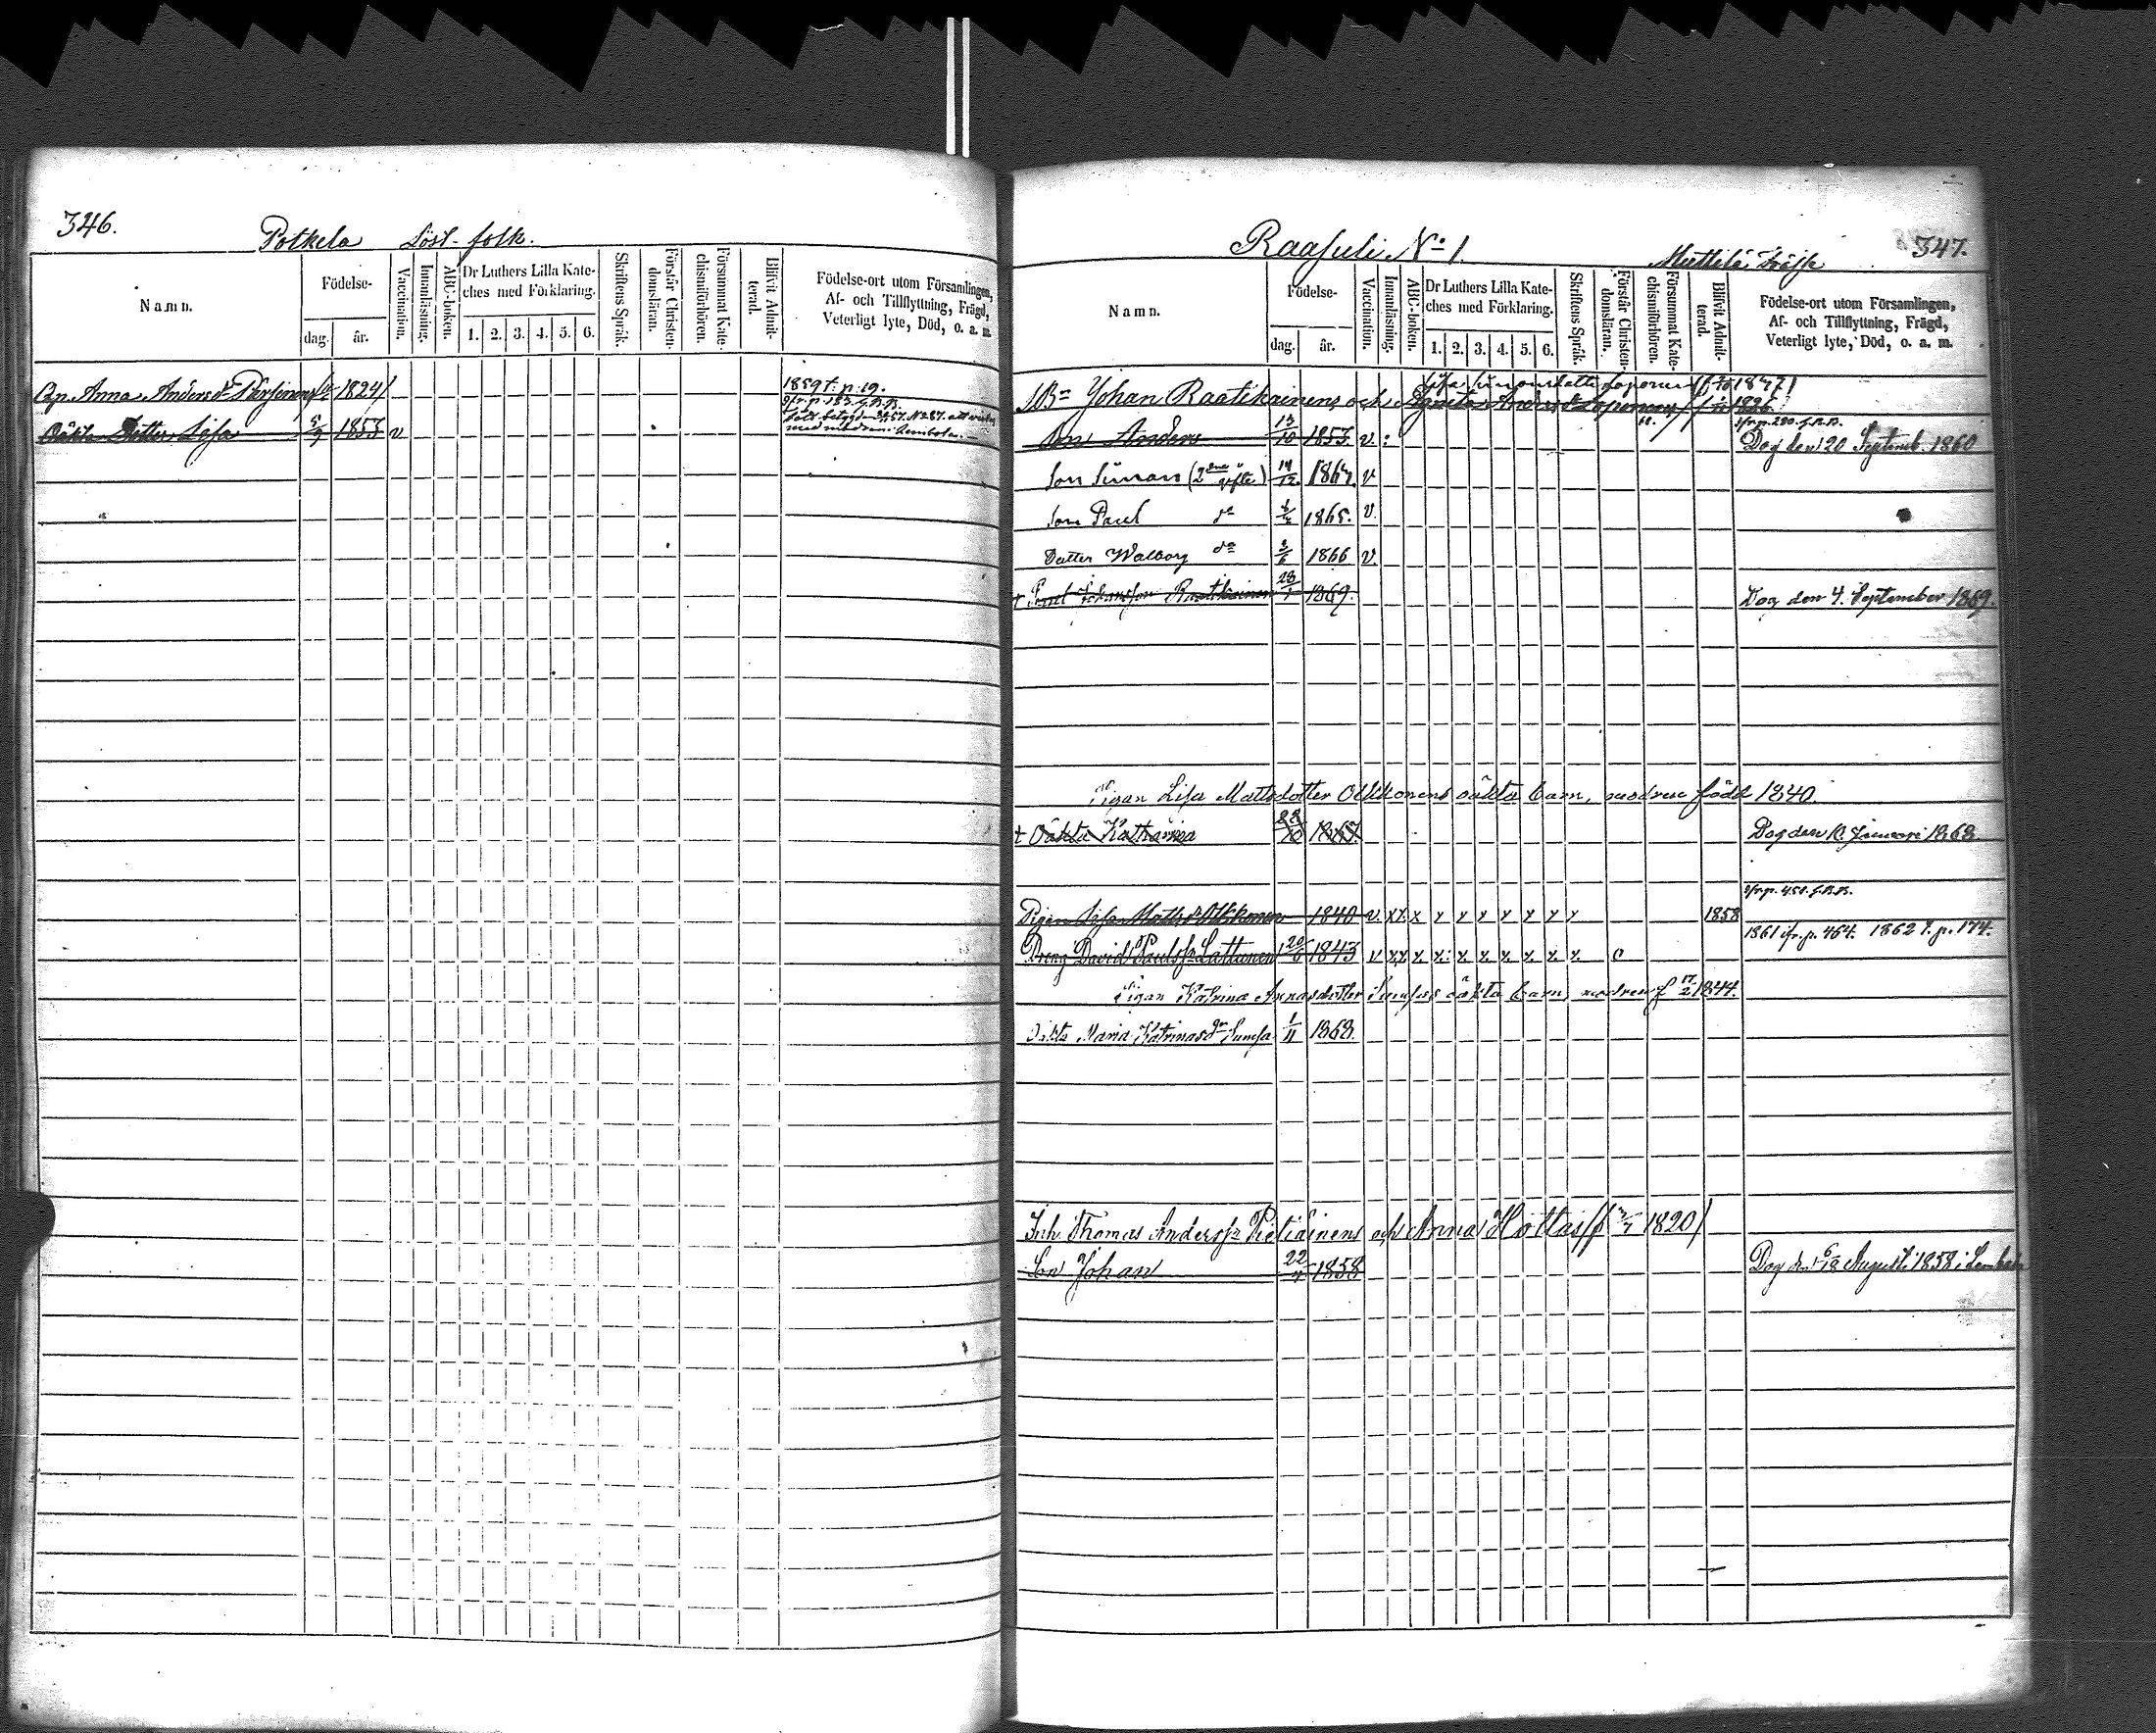 346.
Potkela Löst-folk.
Namn.
Födelse-
dag.
år.
Vaccination.
Innanläsning.
ABC-boken.
Dr Luthers Lilla Kate-
ches med Förklaring.
1. 2. 3. 4. 5. 6.
Skriftens Språk.
Förstår Christen-
domsläran.
Försummat Kate-
chismiförhören.
Blifvit Admit-
terad.
Födelse-ort utom Församlingen,
Af- och Tillflyttning, Frägd,
Veterligt lyte, Död, o. a. m.
Anna Andersdr 1824
1859 t. p. 19.
fr. p. 183. S.B.B.
Oäkta Dotter Lisa 5/9 1853 v
347.
Raasuli No 1
Namn.
Födelse-
dag.
år.
Vaccination.
Innanläsning.
ABC-boken.
Dr Luthers Lilla Kate-
ches med Förklaring.
1. 2. 3. 4. 5. 6.
Skriftens Språk.
Förstår Christen-
domsläran.
Försummat Kate-
chismiförhören.
Blifvit Admit-
terad.
Födelse-ort utom Församlingen,
Af- och Tillflyttning, Frägd,
Veterligt lyte, Död, o. a. m.
Johan Raatikainens och 1826
Son Anders 13/10 1853 v.
Dog den 20 Septemb. 1860
Son Simon v
Son Paul do 1865. v.
Dotter Walborg do 1866 v.
Paul Johansson Raatikainen 28/1 1869.
Dog den 4. September 1869.
Pigan Lisa Mattsdotter Olkkonens oäkta barn, modren född 1840.
† Oäkta Katharina 1867.
Dog den 10. Januari 1868.
fr. p. 451. S.B.B.
Pigan Lisa Mattsdr Olkkonen 1840 v. x x x x x x x x x x 1858
1861 ifr. p. 464. 1862 t. p. 174.
Dreng David Paulss. Lattunen 20/6 1843 v x x x x x x x x x x
Pigan Katrina Annasdotter Sumsas oäkta barn, modren f 17/2 1844.
Oäkta Maria Katrinasdr Sumsa 1/11 1868.
Inh. Thomas Anderss. Pietiäinens och Anna Hottas (f 1820)
Son Johan 22/4 1858
Dog den 6/18 Augusti 1858 i